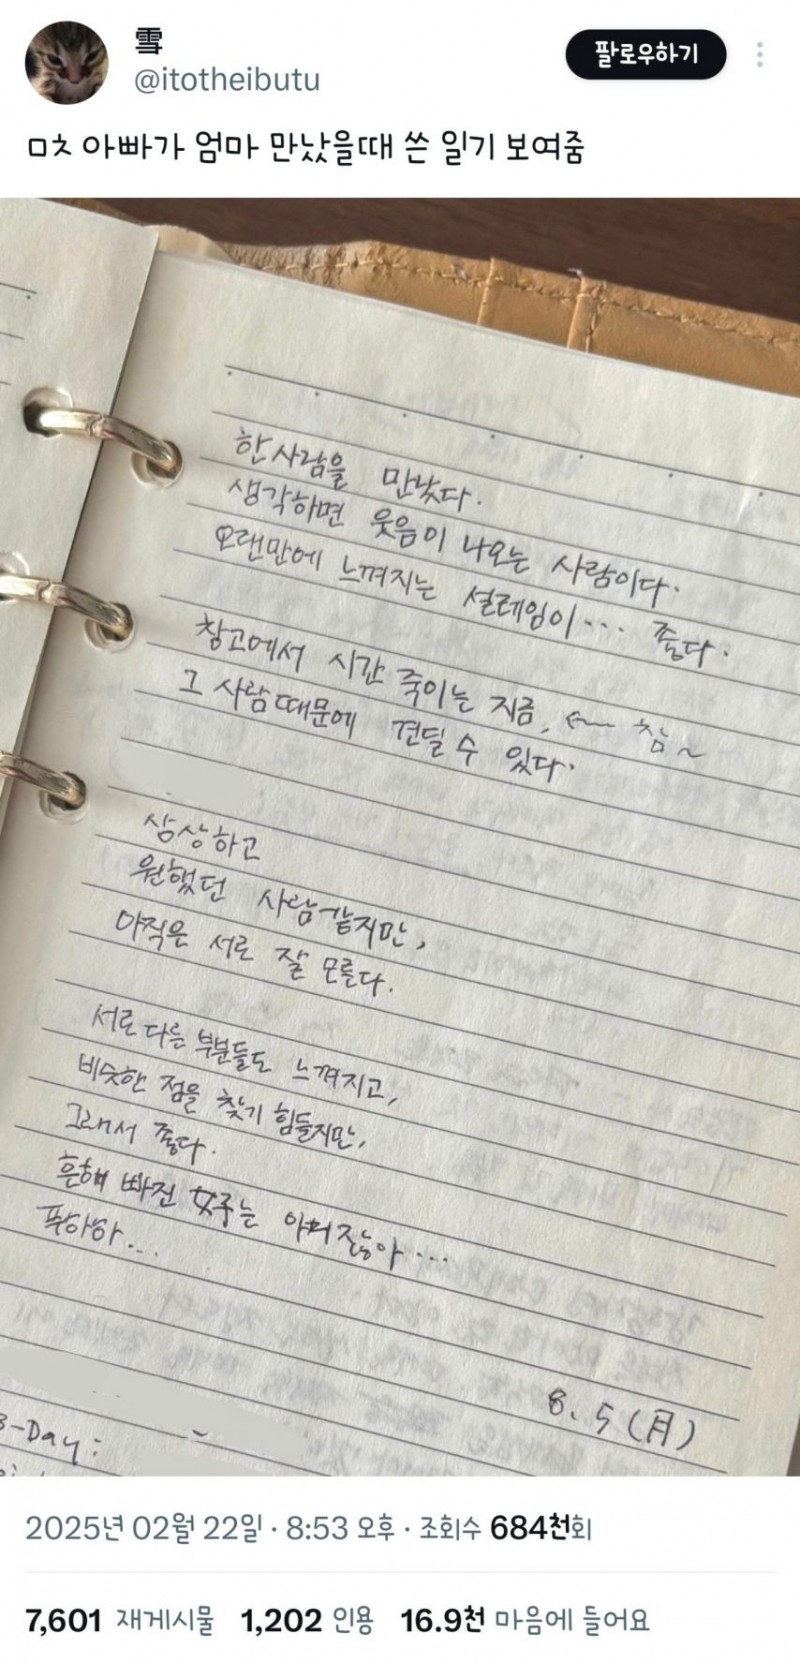 雪
@itotheibutu
팔로우하기
ㅁㅊ 아빠가 엄마 만났을때 쓴 일기 보여줌
한 사람을 만났다.
생각하면 웃음이 나오는 사람이다.
오랜만에 느껴지는 설레임이... 좋다.
창고에서 시간 죽이는 지금, ← 참~
그 사람 때문에 견딜 수 있다.
상상하고
원했던 사람 같지만,
아직은 서로 잘 모른다.
서로 다른 부분들도 느껴지고,
비슷한 점을 찾기 힘들지만,
그래서 좋다.
흔해 빠진 女주는 아니잖아...
푸하하...
8. 5 (月)
B-Day:
2025년 02월 22일 · 8:53 오후 · 조회수 684천회
7,601 재게시물 1,202 인용 16.9천 마음에 들어요